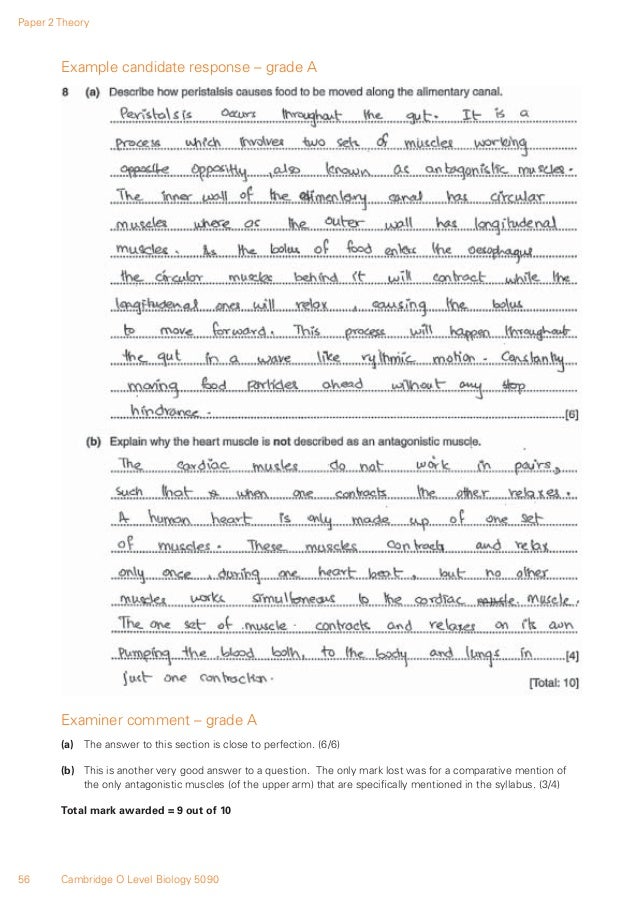 Paper 2 Theory
Example candidate response – grade A
8 (a) Describe how peristalsis causes food to be moved along the alimentary canal.
Peristalsis occurs throughout the gut. It is a
process which involves two sets of muscles working
opposite oppositly, also known as antagonistic muscles.
The inner wall of the alimentary canal has circular
muscles where as the outer wall has longitudenal
muscles. As the bolus of food enters the oesophague
the circular muscles behind it will contract while the
longitudenal ones will relax, causing the bolus
to move forward. This process will happen throughout
the gut in a wave like rythmic motion. Constantly
moving food particles ahead without any stop
hindrance. [6]
(b) Explain why the heart muscle is not described as an antagonistic muscle.
The cardiac musles do not work in pairs,
such that when one contracts the other relaxes.
A human heart is only made up of one set
of muscles. These muscles contracts and relax
only once, during one heart beat, but no other
muscles works simultaneous to the cardiac muscle.
The one set of muscle contracts and relaxes on its own
Pumping the blood both, to the body and lungs in [4]
just one contraction.
[Total: 10]
Examiner comment – grade A
(a) The answer to this section is close to perfection. (6/6)
(b) This is another very good answer to a question. The only mark lost was for a comparative mention of
the only antagonistic muscles (of the upper arm) that are specifically mentioned in the syllabus, (3/4)
Total mark awarded = 9 out of 10
56 Cambridge O Level Biology 5090